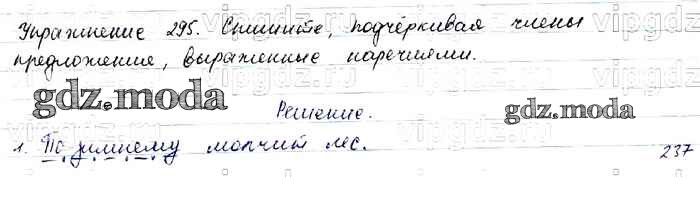 Упражнение 295. Спишите, подчёркивая члены
предложения, выраженные наречиями.
gdz.moda
Решение.
gdz.moda
1. По зимнему молчит лес.
237